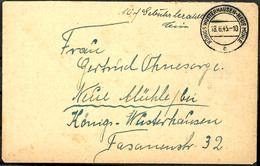 10 Pf Gebühr bezahlt
KÖNIGS WUSTERHAUSEN-NEUE MÜHLE
18.6.45-10
a
Frau
Gertrud Ohnesorge
Neue Mühle/bei
Königs-Wusterhausen
Fasanenstr. 32